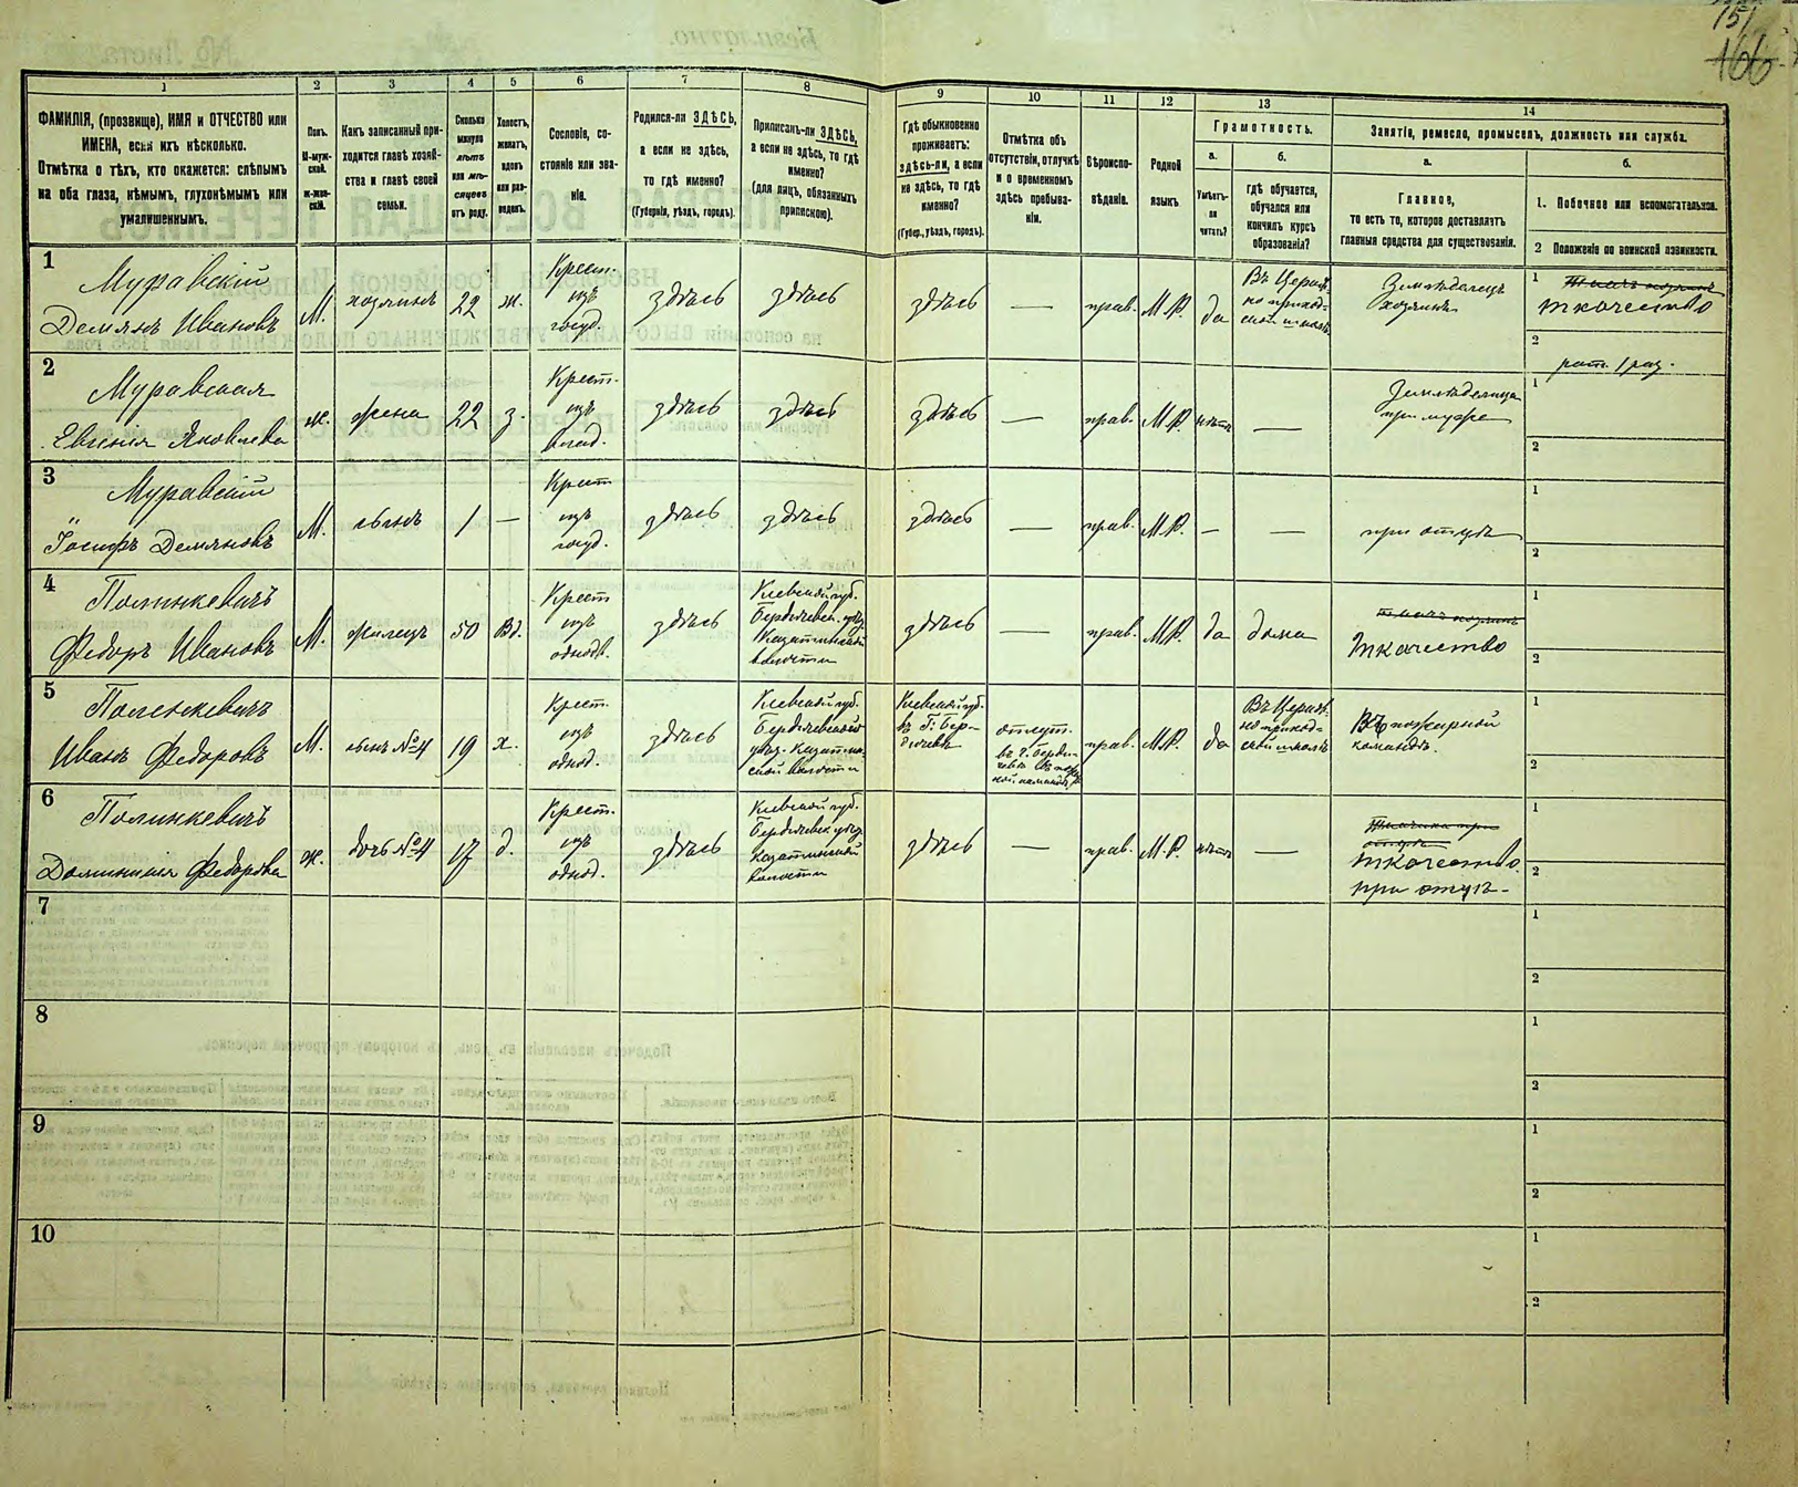 151
166
1
2
3
4
5
6
7
8
9
10
11
12
13
14
ФАМИЛІЯ, (прозвище), ИМЯ и ОТЧЕСТВО или
ИМЕНА, если ихъ нѣсколько.
Отмѣтка о тѣхъ, кто окажется: слѣпымъ
на оба глаза, нѣмымъ, глухонѣмымъ или
умалишеннымъ.
Полъ.
М-муж-
ской.
ж-жен-
скій.
Какъ записанный при-
ходится главѣ хозяй-
ства и главѣ своей
семьи.
Сколько
минуло
лѣтъ
или мѣ-
сяцевъ
отъ роду.
Холостъ,
женатъ,
вдовъ
или раз-
веденъ.
Сословіе, со-
стояніе или зва-
ніе.
Родился-ли ЗДѢСЬ,
а если не здѣсь,
то гдѣ именно?
(Губернія, уѣздъ, городъ).
Приписанъ-ли ЗДѢСЬ,
а если не здѣсь, то гдѣ
именно?
(для лицъ, обязанныхъ
припискою).
Гдѣ обыкновенно
проживаетъ:
здѣсь-ли, а если
не здѣсь, то гдѣ
именно?
(Губер., уѣздъ, городъ).
Отмѣтка объ
отсутствіи, отлучкѣ
и о временномъ
здѣсь пребыва-
ніи.
Вѣроиспо-
вѣданіе.
Родной
языкъ
Грамотность.
а.
Умѣетъ-
ли
читать?
б.
гдѣ обучается,
обучался или
кончилъ курсъ
образованія?
Занятіе, ремесло, промыселъ, должность или служба.
а.
Главное,
то есть то, которое доставляетъ
главныя средства для существованія.
б.
1. Побочное или вспомогательное.
2 Положеніе по воинской повинности.
1
Муравскій
Демянъ Ивановъ
М.
хозяинъ
22
ж.
Крест.
изъ
госуд.
здѣсь
здѣсь
здѣсь
—
прав.
М.Р.
да
Въ Церков-
но приход-
ской школѣ
Земледѣлецъ
хозяинъ
1
ткачество
2
рат. 1 раз.
2
Муравская
Евгенія Яковлева
ж.
жена
22
з.
Крест.
изъ
влад.
здѣсь
здѣсь
здѣсь
—
прав.
М.Р.
нѣтъ
—
Земледѣлица
при мужѣ
1
2
3
Муравскій
Іосифъ Демяновъ
М.
сынъ
1
—
Крест
изъ
госуд.
здѣсь
здѣсь
здѣсь
—
прав.
М.Р.
—
—
при отцѣ
1
2
4
Полинкевичъ
Федоръ Ивановъ
М.
жилецъ
50
Вд.
Крест
изъ
однодв.
здѣсь
Кіевской губ.
Бердичевск. уѣз.
Казатинской
волости
здѣсь
—
прав.
М.Р.
да
дома
ткачество
1
2
5
Полинкевичъ
Иванъ Федоровъ
М.
сынъ №4
19
х.
Крест.
изъ
однод.
здѣсь
Кіевской губ.
Бердичевскаго
уѣз. Казатин-
ской волости
Кіевской губ.
въ Г. Бер-
дичевѣ
отлуч.
въ г. Берди-
чевъ въ пожар-
ной командѣ
прав.
М.Р.
да
Въ Церков-
но приход-
ской школѣ
Въ пожарной
командѣ.
1
2
6
Полинкевичъ
Домникия Федорова
ж.
дочь №4
17
д.
Крест.
изъ
однод.
здѣсь
Кіевской губ.
Бердичевск уѣз.
Казатинской
волости
здѣсь
—
прав.
М.Р.
нѣтъ
—
ткачество
при отцѣ.
1
2
7
1
2
8
1
2
9
1
2
10
1
2